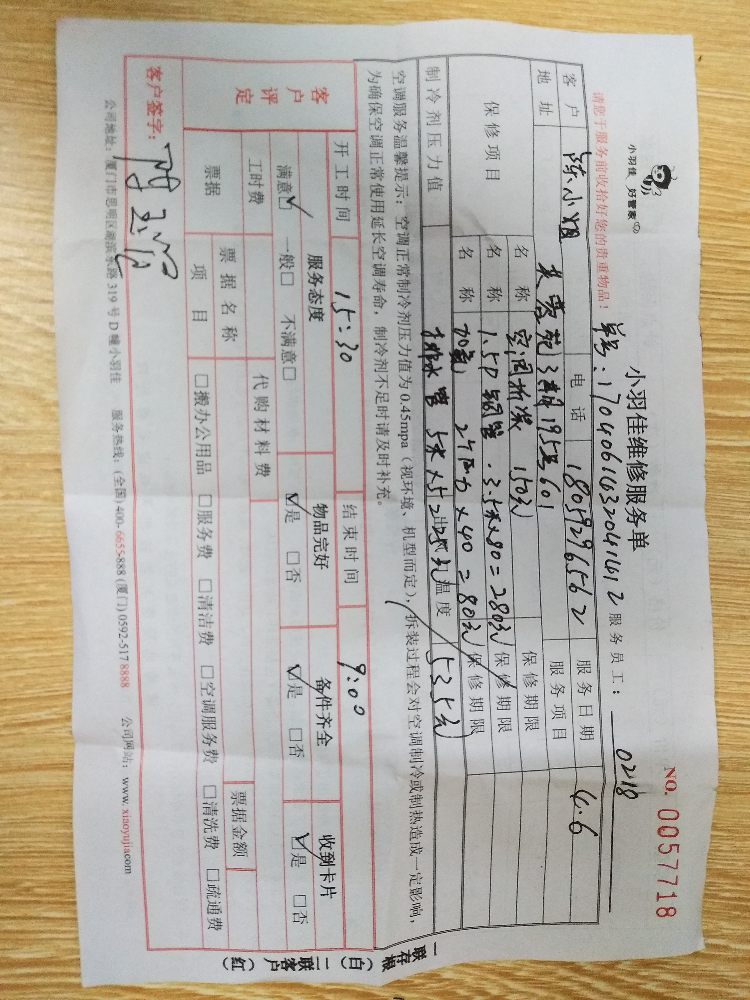 小羽佳 好管家
小羽佳维修服务单
NO. 0057718
请您于服务前收拾好您的贵重物品!
单号:170406163204161612 服务员工: 0218
客户 陈小姐 电话 18059296562 服务日期 4.6
地址 195号601 服务项目
保修项目 名称 空调拆装 150元 保修期限
名称 1.5P铜管 3.5米×80=280元 保修期限
名称 加氟 2个压力×40=80元 保修期限
制冷剂压力值 排水管 5米×5=25元 出风口温度 535元
空调服务温馨提示:空调正常制冷剂压力值为0.45mpa(视环境、机型而定),拆装过程会对空调制冷或制热造成一定影响,
为确保空调正常使用延长空调寿命,制冷剂不足时请及时补充。
客户评定 开工时间 15:30 结束时间 9:00
服务态度 物品完好 备件齐全 收到卡片
满意☑ 一般□ 不满意□ ☑是 □否 ☑是 □否 ☑是 □否
工时费 代购材料费
票据 票据名称 票据金额
项目 □搬办公用品 □服务费 □清洁费 □空调服务费 □清洗费 □疏通费
客户签字:
公司地址:厦门市思明区湖滨东路319号D幢小羽佳 服务热线:(全国)400-6655-888 (厦门)0592-5178888 公司网站:www.xiaoyujia.com
一联存根(白) 二联客户(红)